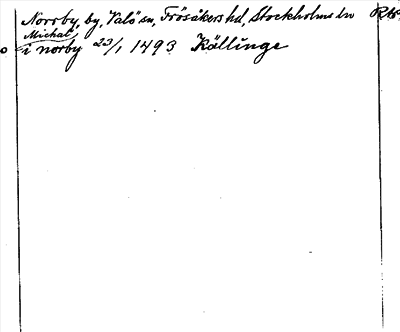 Norrby, by, Valö sn, Frösåkers hd, Stockholms ln
Michal
i norby 23/1 1493 Källinge